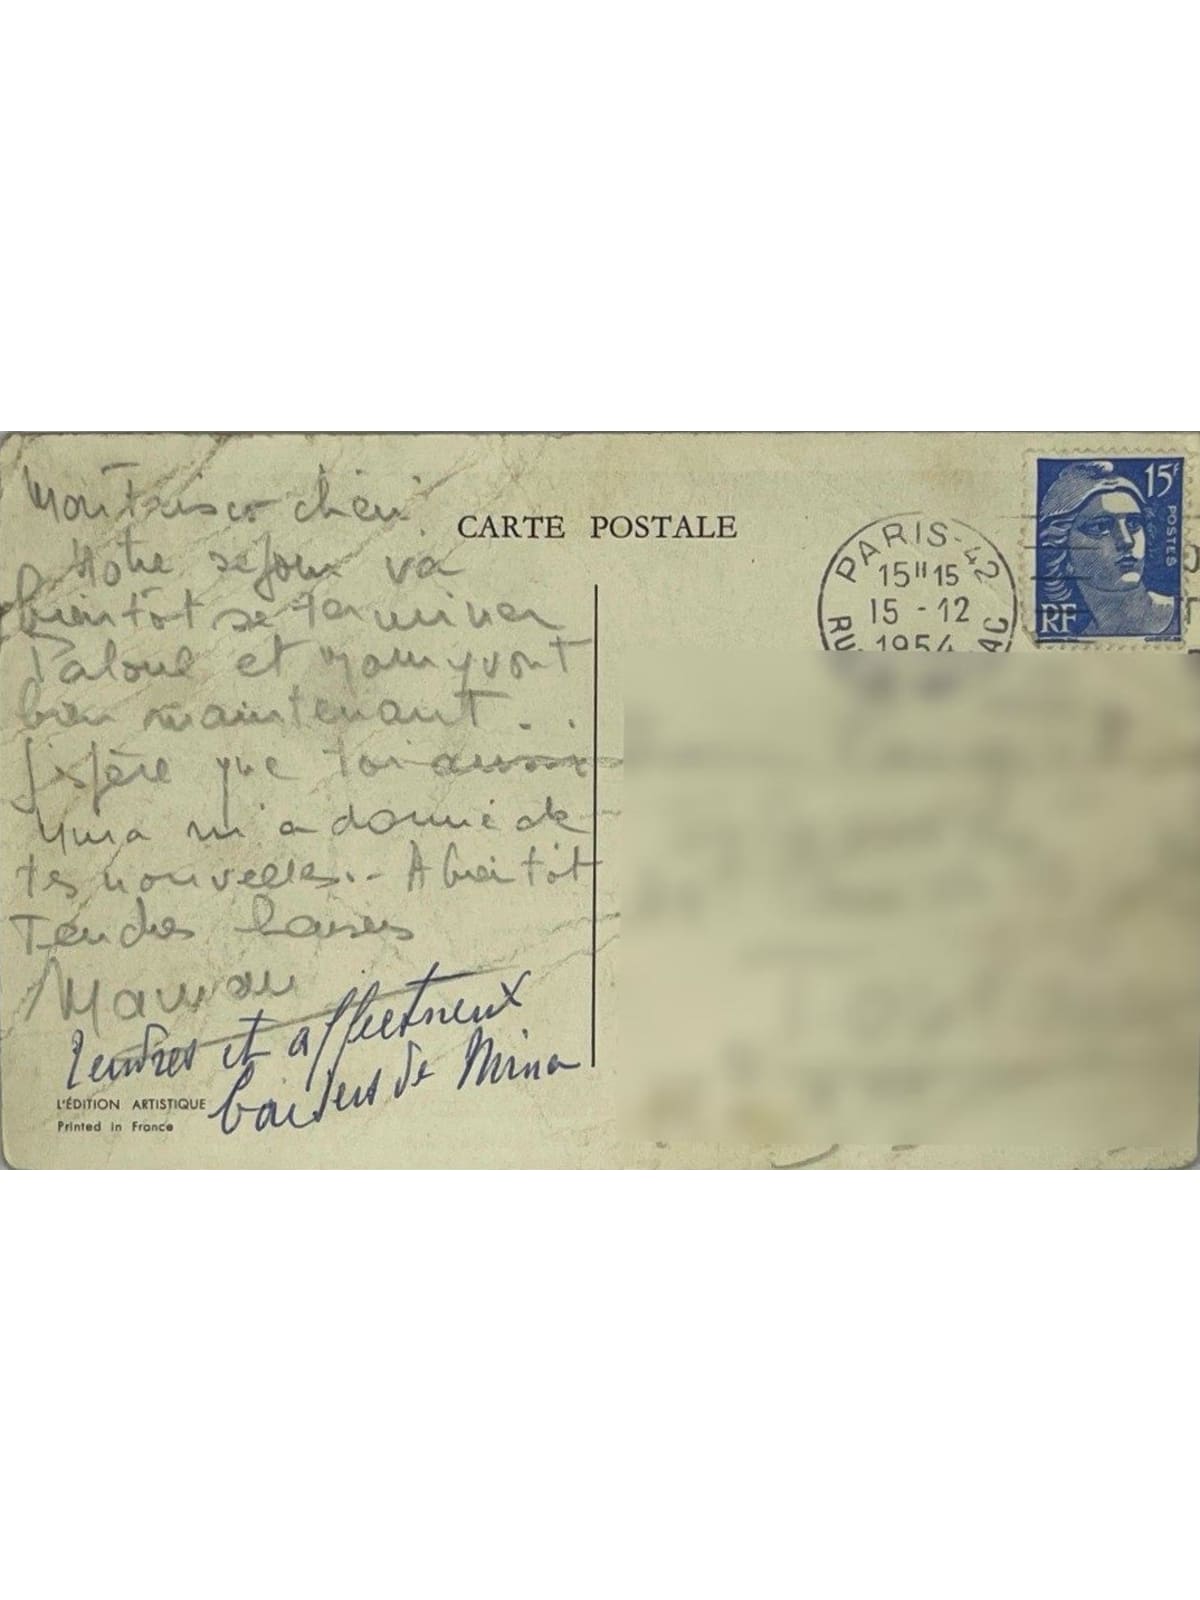 chéri
CARTE POSTALE
Notre séjour va
bientôt se terminer
et vont
bien maintenant..
J'espère que toi aussi
m'a donné de
tes nouvelles.- A bientôt
Tendres baisers
Maman
Tendres et affectueux
baisers de Mina
L'ÉDITION ARTISTIQUE
Printed in France
PARIS-42
15H15
15-12
1954
RU AC
15F
POSTES
RF